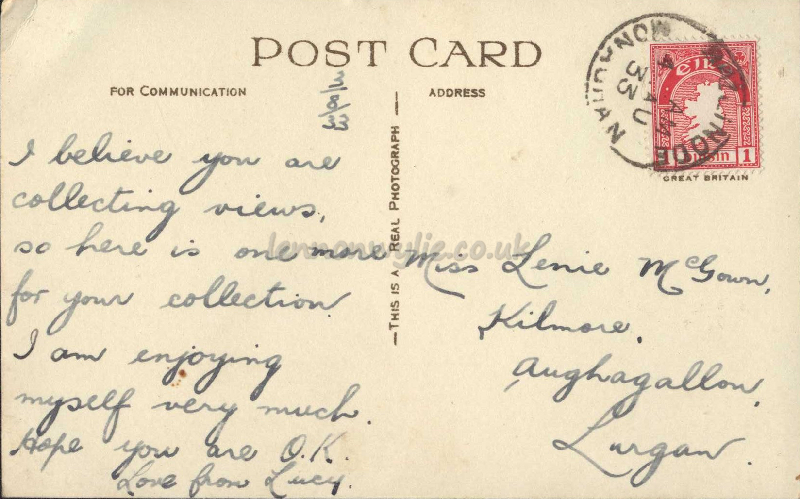 POST CARD
FOR COMMUNICATION
ADDRESS
I believe you are
collecting views,
so here is one more
for your collection
I am enjoying
myself very much.
Hope you are O.K.
Love from Lucy.
THIS IS A REAL PHOTOGRAPH
Miss Lenie McGown,
Kilmore,
Aughagallon,
Lurgan.
1
GREAT BRITAIN
MONAGHAN
AM
4 AU
33
lennonwylie.co.uk